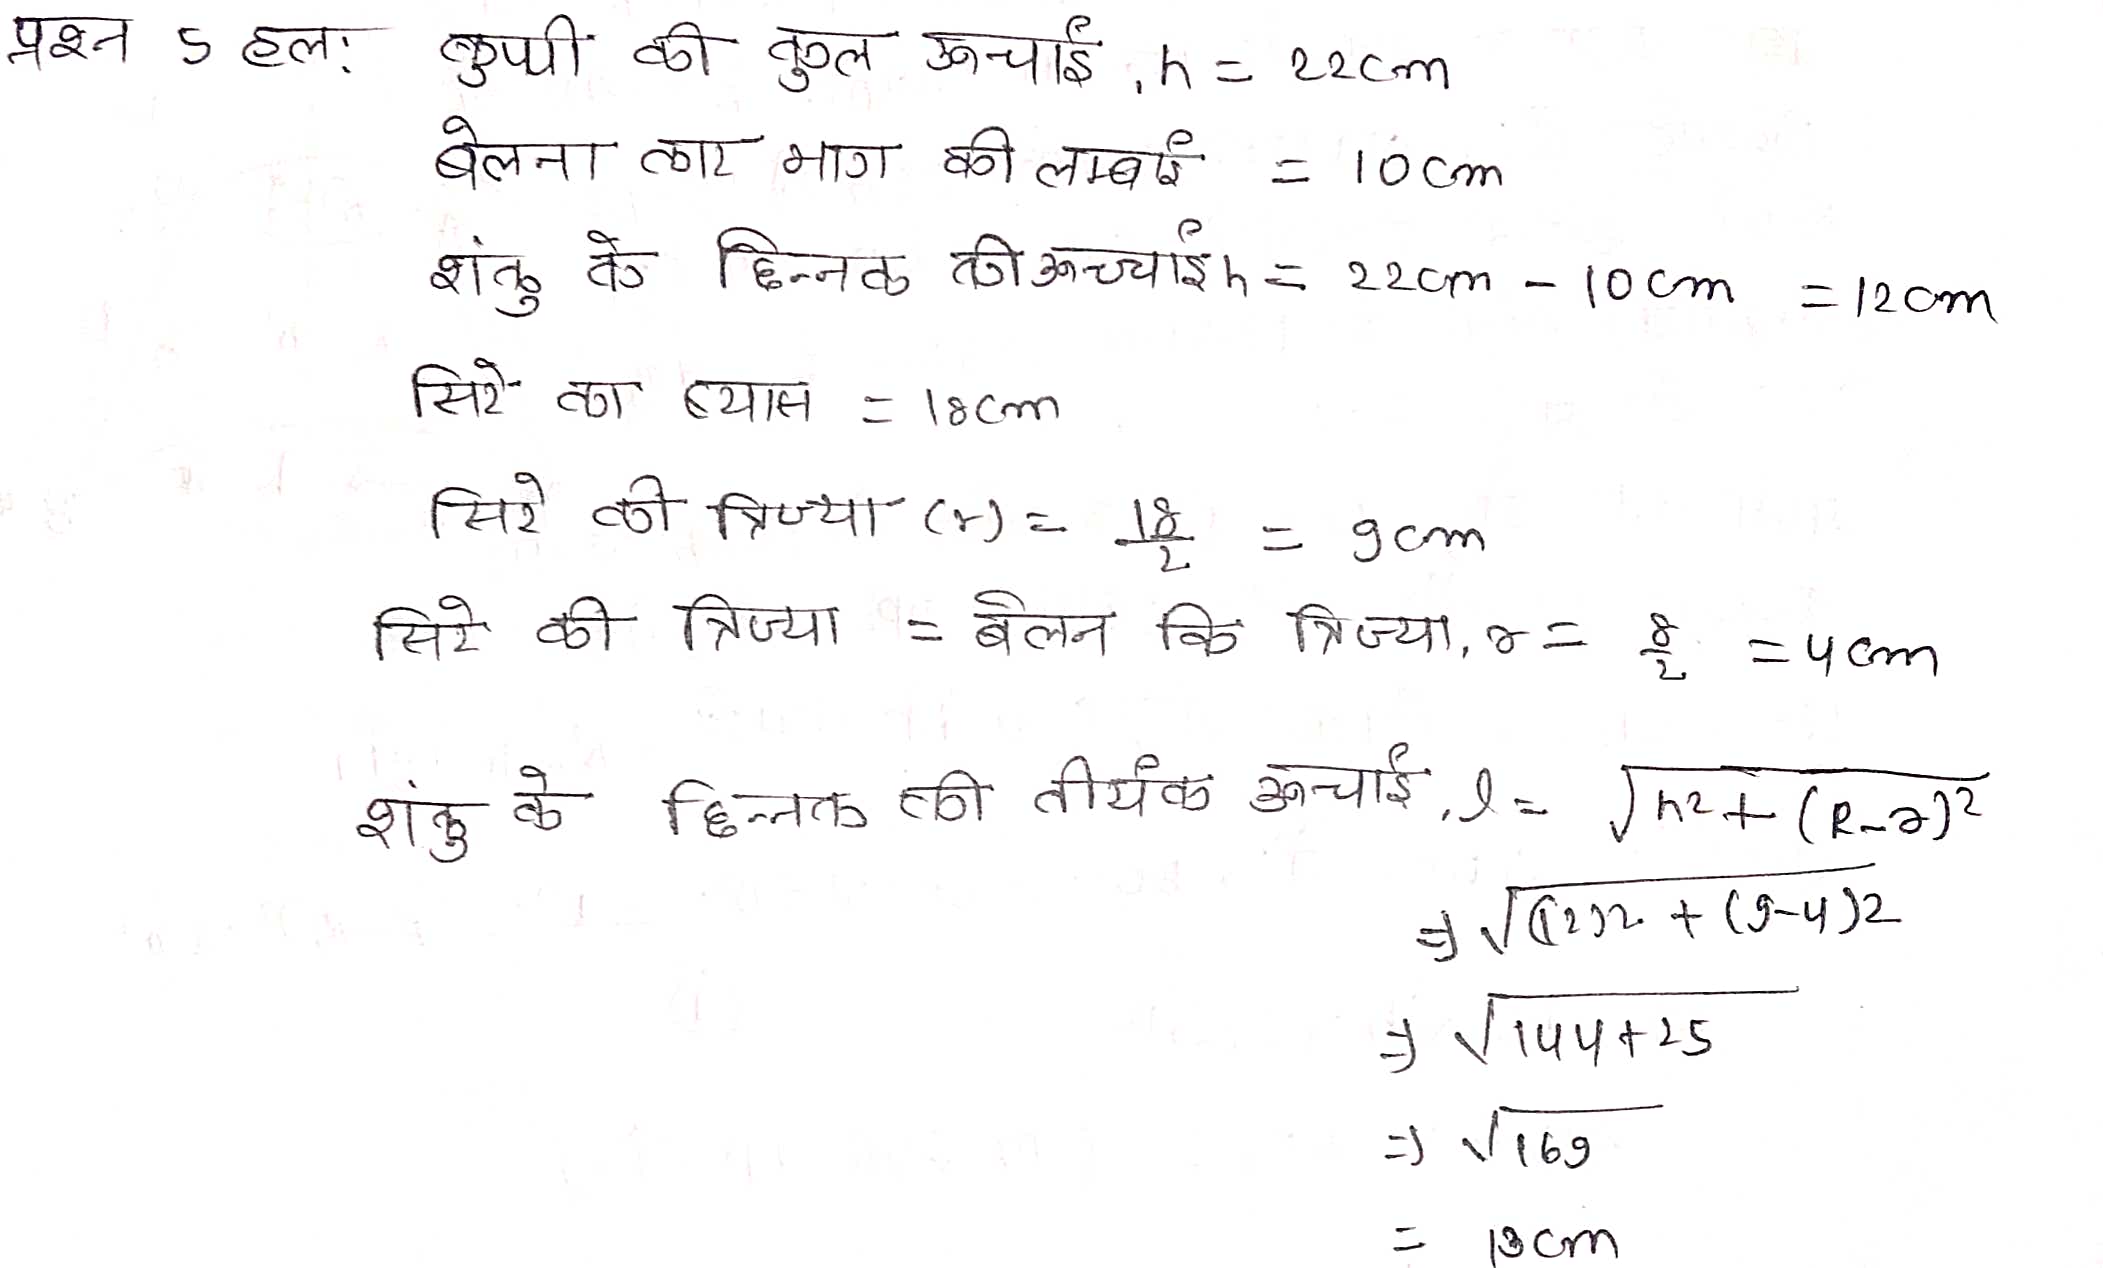 प्रश्न 5 हल: कुप्पी की कुल ऊन्चाई, h = 22cm
बेलना कार भाग की लम्बाई = 10cm
शंकु के छिन्नक की ऊच्चाई h = 22cm - 10cm = 12cm
सिरे का व्यास = 18cm
सिरे की त्रिज्या (r) = 18/2 = 9cm
सिरे की त्रिज्या = बेलन कि त्रिज्या, r = 8/2 = 4cm
शंकु के छिन्नक की तीर्यक ऊन्चाई, l = √h2 + (R-r)2
⇒ √(12)2 + (9-4)2
⇒ √144+25
⇒ √169
= 13cm